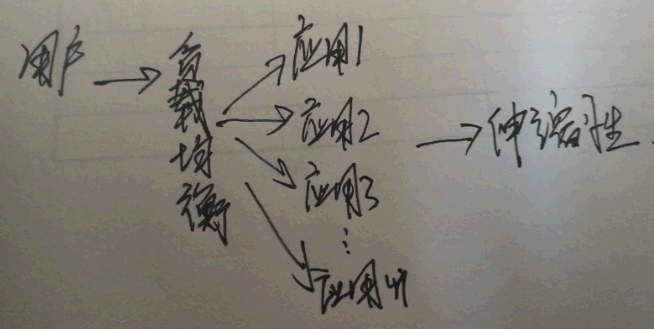 用户
负载均衡
应用1
应用2
应用3
应用n
伸缩性